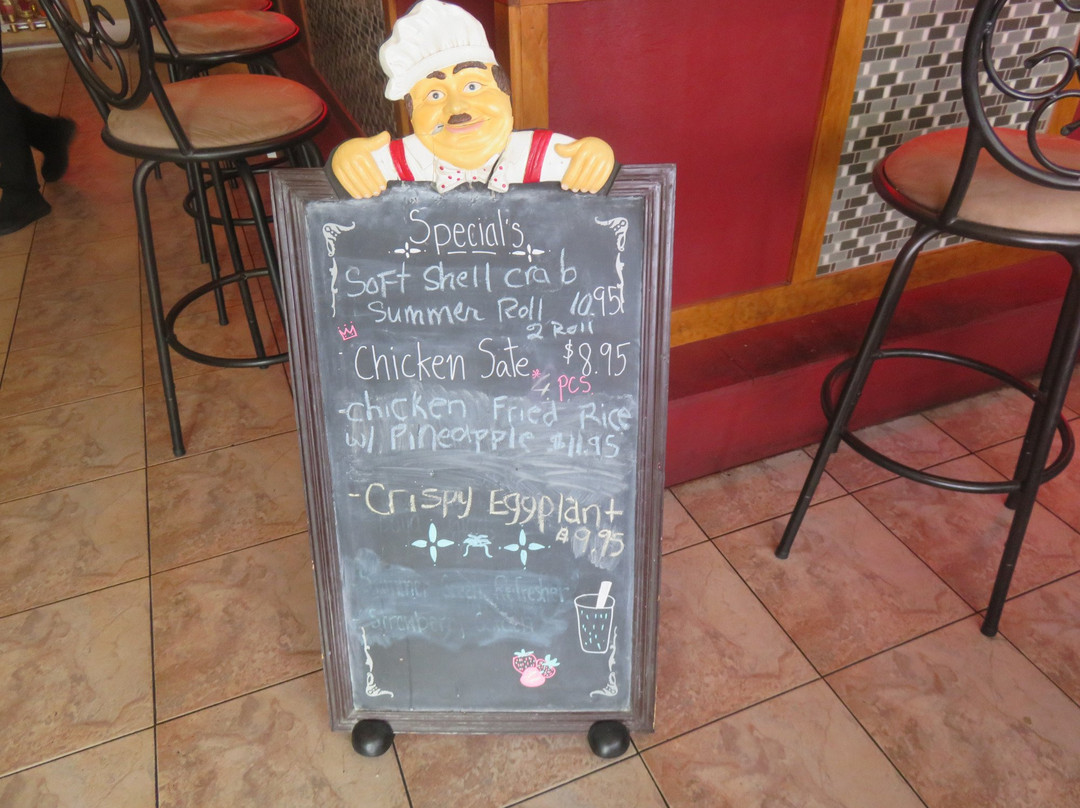 Special's
Soft Shell crab
Summer Roll 10.95
2 Roll
- Chicken Sate $8.95
* 4 PCS
-chicken Fried Rice
w/ Pineapple $11.95
-Crispy Eggplant
$9.95
Summer Refresher